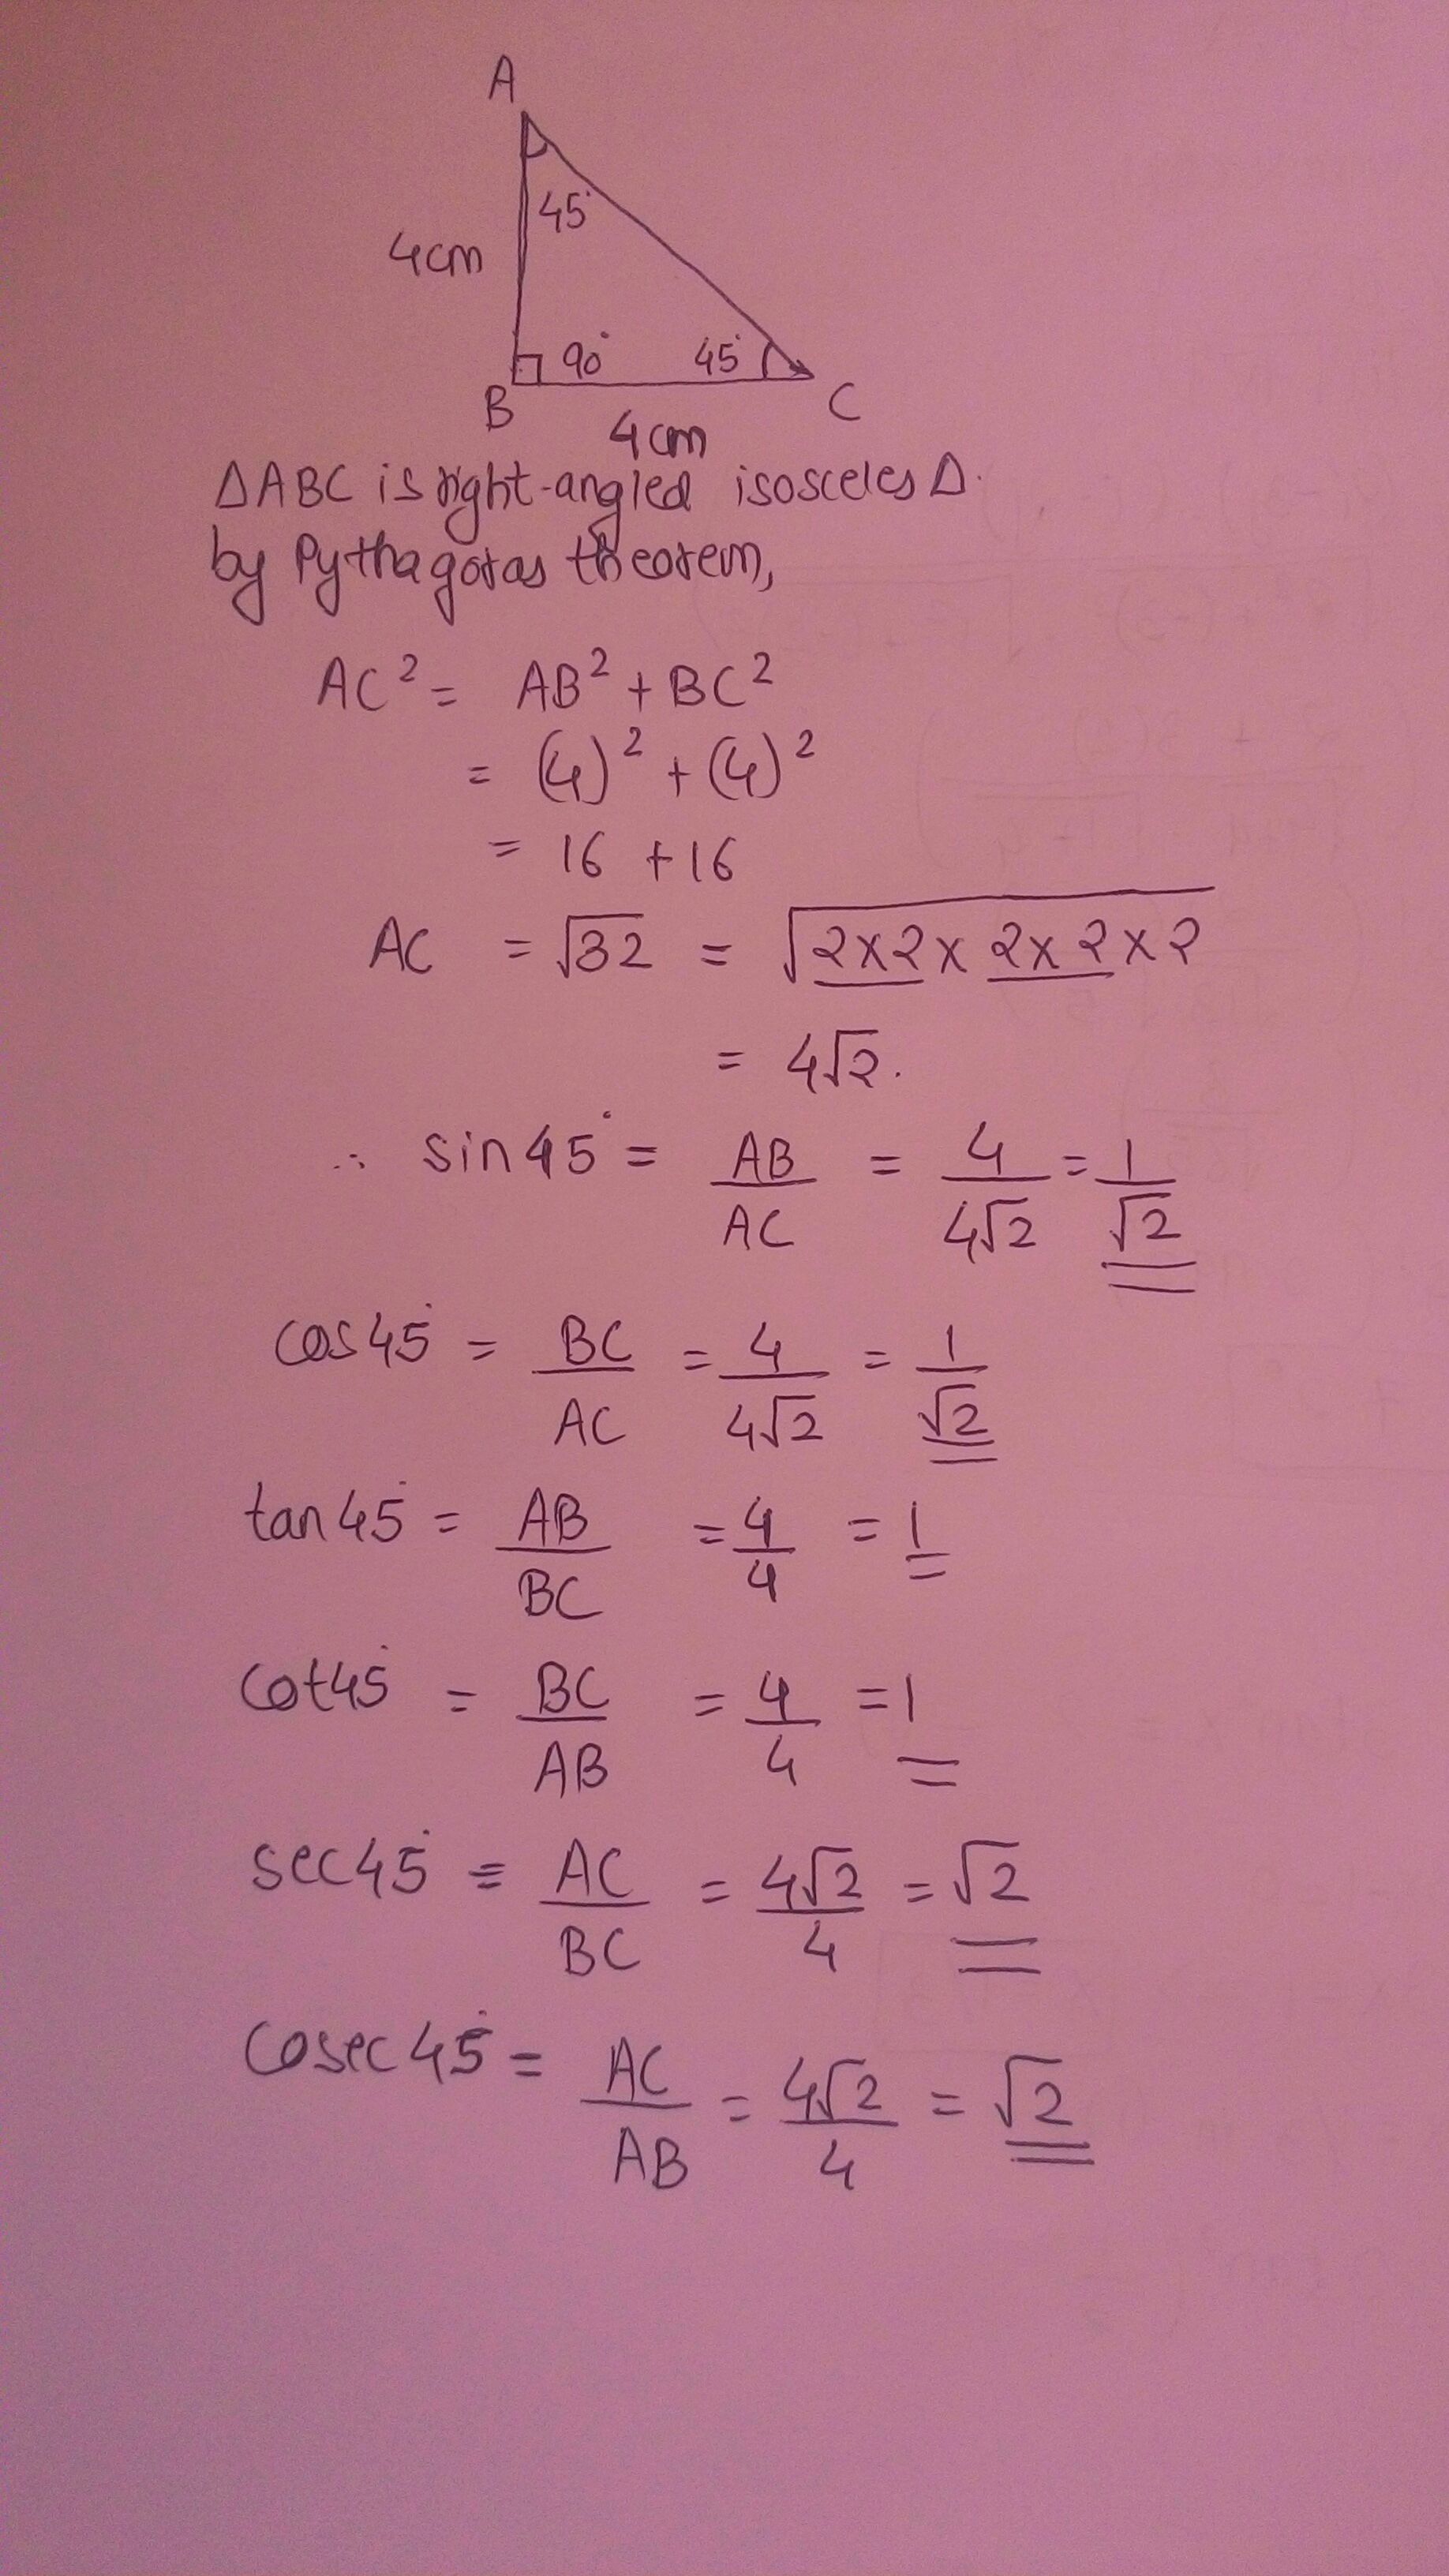 A
45°
4cm
90° 45°
B C
4cm
ΔABC is right-angled isosceles Δ.
by Pythagoras theorem,
AC² = AB² + BC²
= (4)² + (4)²
= 16 + 16
AC = √32 = √2×2×2×2×2
= 4√2.
∴ sin45° = AB/AC = 4/4√2 = 1/√2
cos45° = BC/AC = 4/4√2 = 1/√2
tan45° = AB/BC = 4/4 = 1
cot45° = BC/AB = 4/4 = 1
sec45° = AC/BC = 4√2/4 = √2
cosec45° = AC/AB = 4√2/4 = √2